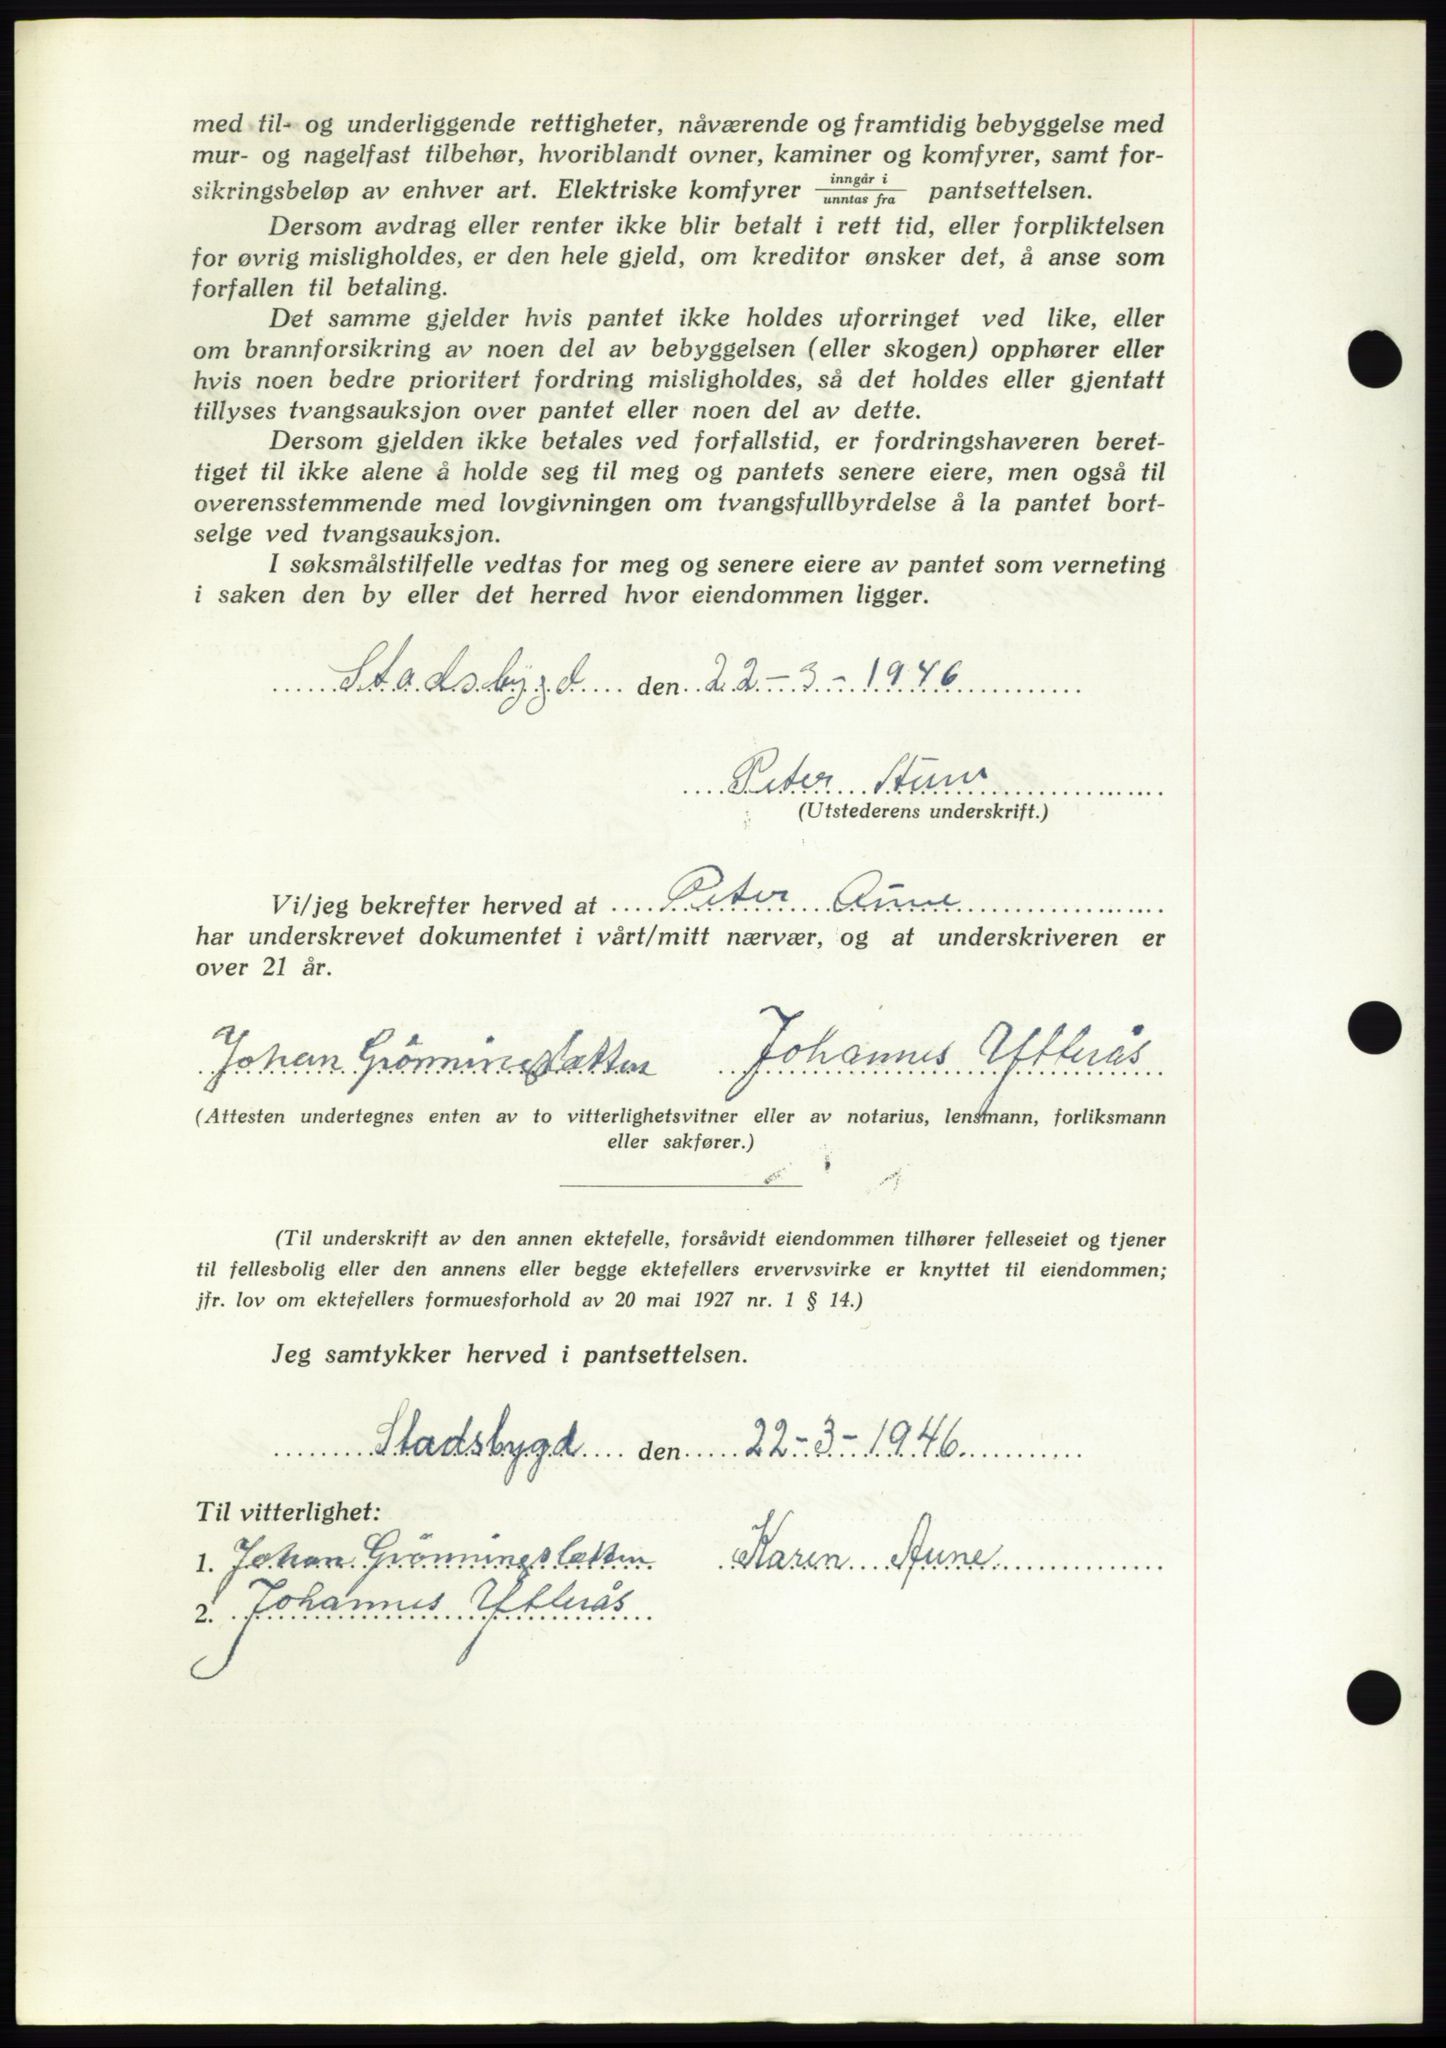 med til- og underliggende rettigheter, nåværende og framtidig bebyggelse med
mur- og nagelfast tilbehør, hvoriblandt ovner, kaminer og komfyrer, samt for-
sikringsbeløp av enhver art. Elektriske komfyrer inngår i / unntas fra pantsettelsen.
Dersom avdrag eller renter ikke blir betalt i rett tid, eller forpliktelsen
for øvrig misligholdes, er den hele gjeld, om kreditor ønsker det, å anse som
forfallen til betaling.
Det samme gjelder hvis pantet ikke holdes uforringet ved like, eller
om brannforsikring av noen del av bebyggelsen (eller skogen) opphører eller
hvis noen bedre prioritert fordring misligholdes, så det holdes eller gjentatt
tillyses tvangsauksjon over pantet eller noen del av dette.
Dersom gjelden ikke betales ved forfallstid, er fordringshaveren beret-
tiget til ikke alene å holde seg til meg og pantets senere eiere, men også til
overensstemmende med lovgivningen om tvangsfullbyrdelse å la pantet bort-
selge ved tvangsauksjon.
I søksmålstilfelle vedtas for meg og senere eiere av pantet som verneting
i saken den by eller det herred hvor eiendommen ligger.
Stadsbygd den 22-3-1946
Peter Aune
(Utstederens underskrift.)
Vi/jeg bekrefter herved at Peter Aune
har underskrevet dokumentet i vårt/mitt nærvær, og at underskriveren er
over 21 år.
Johan Grönningslætten Johannes Ytterås
(Attesten undertegnes enten av to vitterlighetsvitner eller av notarius, lensmann, forliksmann
eller sakfører.)
(Til underskrift av den annen ektefelle, forsåvidt eiendommen tilhører felleseiet og tjener
til fellesbolig eller den annens eller begge ektefellers ervervsvirke er knyttet til eiendommen;
jfr. lov om ektefellers formuesforhold av 20 mai 1927 nr. 1 § 14.)
Jeg samtykker herved i pantsettelsen.
Stadsbygd den 22-3-1946
Til vitterlighet:
1. Johan Grönningslætten Karen Aune
2. Johannes Ytterås